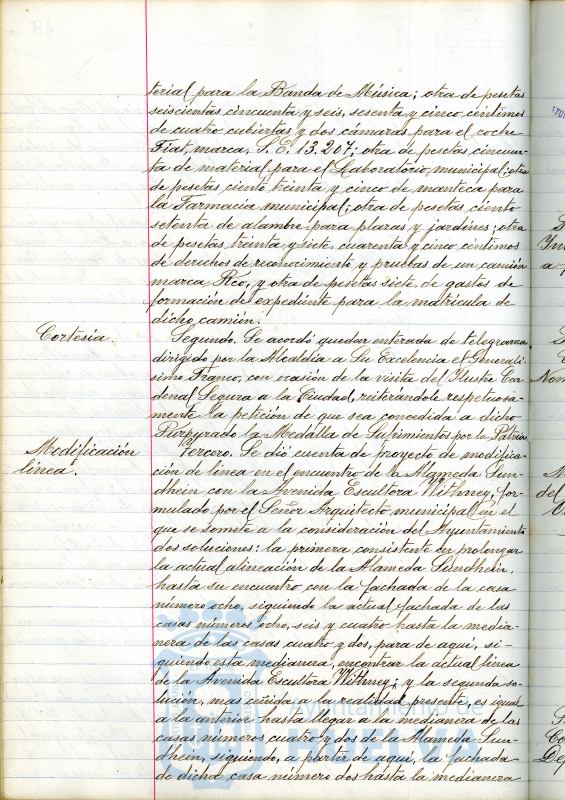 terial para la Banda de Música; otra de pesetas
seiscientas cincuenta y seis, sesenta y cinco céntimos
de cuatro cubiertas y dos cámaras para el coche
Fiat, marca, S.E. 13.207; otra de pesetas cincuen-
ta de material para el Laboratorio municipal; otra
de pesetas ciento treinta y cinco de manteca para
la Farmacia municipal; otra de pesetas ciento
setenta de alambre para plazas y jardines; otra
de pesetas treinta y siete, cuarenta y cinco céntimos
de derechos de reconocimiento y pruebas de un camión
marca Reo, y otra de pesetas siete de gastos de
formación de expediente para la matrícula de
dicho camión.
Cortesía.
Segundo. Se acordó quedar enterada de telegrama
dirigido por la Alcaldía a Su Excelencia el Generalí-
simo Franco, con ocasión de la visita del Ilustre Car-
denal Segura a la Ciudad, reiterándole respetuosa-
mente la petición de que sea concedida a dicho
Purpurado la Medalla de Sufrimientos por la Patria.
Modificación
línea.
Tercero. Se dió cuenta de proyecto de modifica-
ción de línea en el encuentro de la Alameda Sun-
dhein con la Avenida Escultora Withney, for-
mulado por el Señor Arquitecto municipal en el
que se somete a la consideración del Ayuntamiento
dos soluciones: la primera consistente en prolongar
la actual alineación de la Alameda Sundhein,
hasta su encuentro con la fachada de la casa
número ocho, siguiendo la actual fachada de las
casas números ocho, seis y cuatro hasta la media-
nera de las casas cuatro y dos, para de aquí, si-
guiendo esta medianera, encontrar la actual línea
de la Avenida Escultora Withney; y la segunda so-
lución, mas ceñida a la realidad presente, es igual
a la anterior hasta llegar a la medianera de las
casas números cuatro y dos de la Alameda Sun-
dhein, siguiendo, a partir de aquí, la fachada
de dicha casa número dos hasta la medianera
Ayuntamiento de
HUELVA